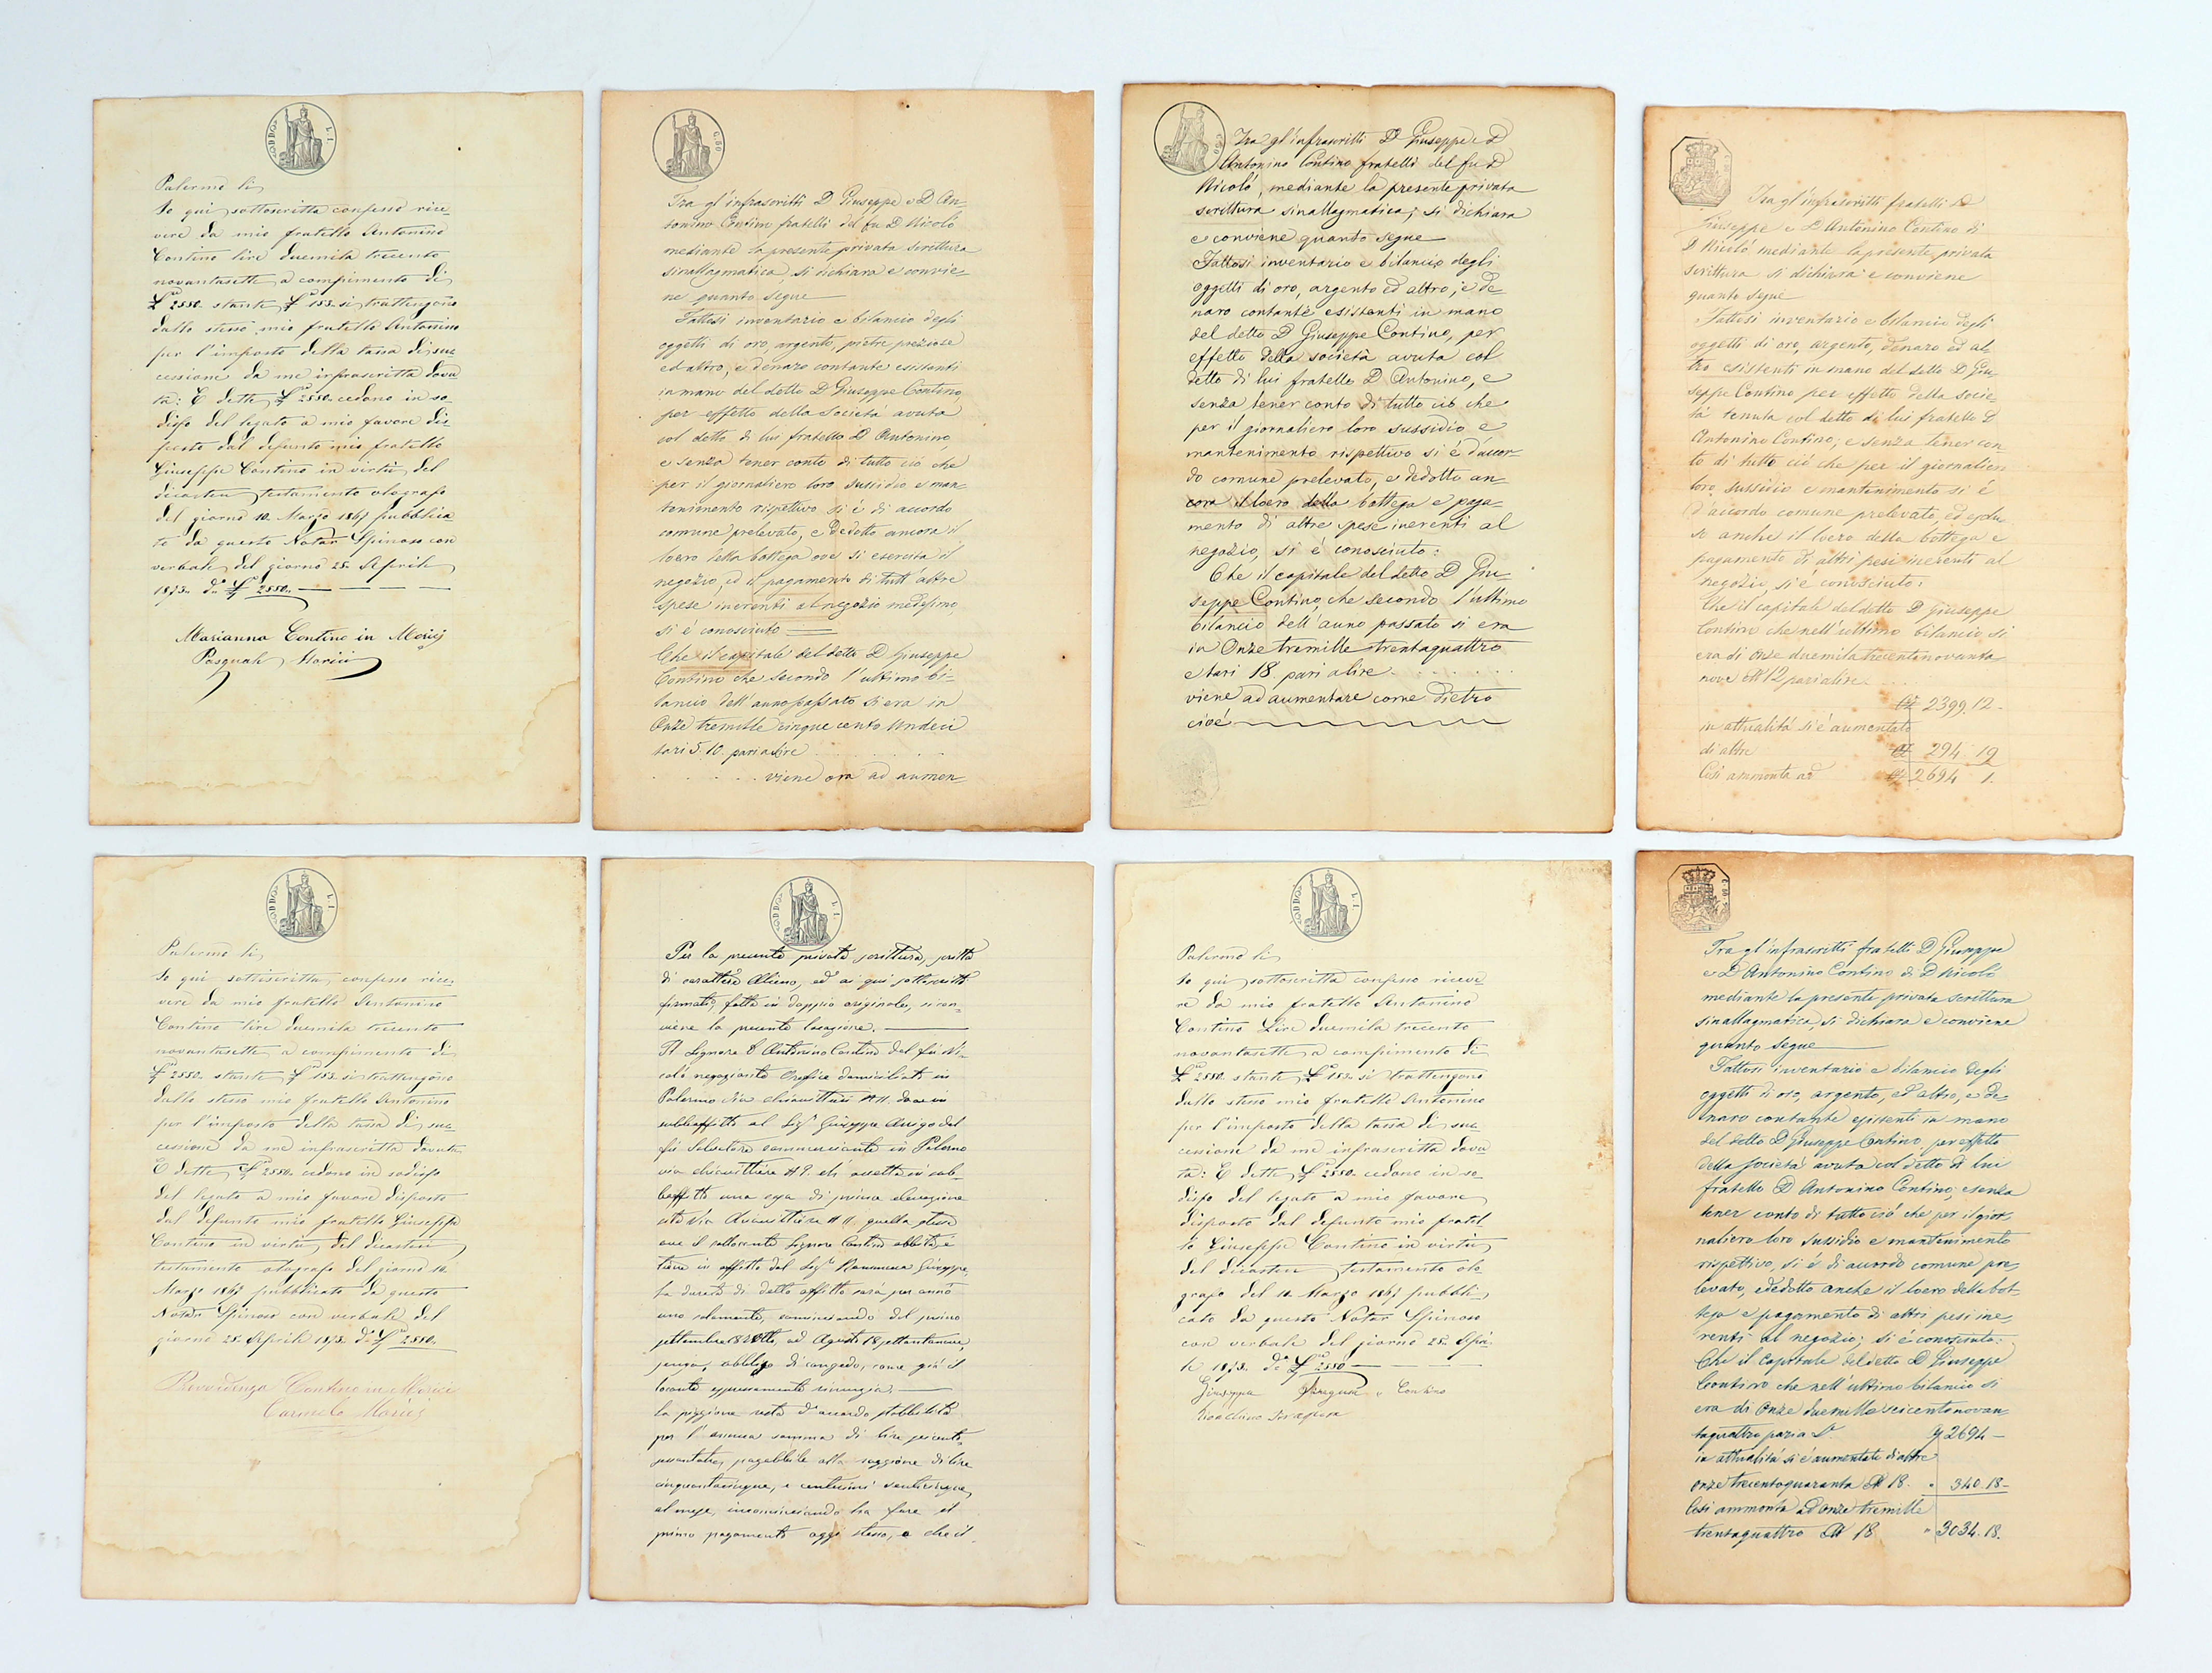 Palermo li
Io qui sottoscritta confesso rice-
vere da mio fratello Antonino
Contino lire duemila trecento
novantasette a compimento di
£ 2550. stante £ 153. si trattengono
dallo stesso mio fratello Antonino
per l'imposto della tassa di suc-
cessione da me infrascritta dovu
ta: E dette £ 2550. cedono in so-
disfo del legato a mio favore dis-
posto dal defunto mio fratello
Giuseppe Contino in virtù del
dicastero testamento olografo
del giorno 10 Marzo 1867 pubblica-
to da questo Notar Spinoso con
verbale del giorno 25 Aprile
1873. £ 2550.
Marianna Contino in Morici
Pasquale Morici
Tra gl'infrascritti D. Giuseppe e D. An-
tonino Contino fratelli del fu D. Nicolò
mediante la presente privata scrittura
sinallagmatica, si dichiara e convie-
ne quanto segue
Fattosi inventario e bilancio degli
oggetti di oro, argento, pietre preziose
ed altro, e denaro contante esistenti
in mano del detto D. Giuseppe Contino,
per effetto della Società avuta
col detto di lui fratello D. Antonino,
e senza tener conto di tutto ciò che
per il giornaliero loro sussidio e man-
tenimento rispettivo si è di accordo
comune prelevato, e dedotto ancora il
loero della bottega ove si esercita il
negozio, ed il pagamento di tutt'altre
spese inerenti al negozio medesimo,
si è conosciuto
Che il capitale del detto D. Giuseppe
Contino che secondo l'ultimo bi-
lancio dell'anno passato si era in
Onze tremille cinque cento undeci
tari 5.10. pari a lire . . .
. . . . viene ora ad aumen-
Tra gl'infrascritti D. Giuseppe e D.
Antonino Contino fratelli del fu D.
Nicolò, mediante la presente privata
scrittura sinallagmatica, si dichiara
e conviene quanto segue
Fattosi inventario e bilancio degli
oggetti di oro, argento ed altro, e de-
naro contante esistenti in mano
del detto D. Giuseppe Contino, per
effetto della società avuta col
detto di lui fratello D. Antonino, e
senza tener conto di tutto ciò che
per il giornaliero loro sussidio e
mantenimento rispettivo si è d'accor-
do comune prelevato, e dedotto an-
cora il loero della bottega e paga-
mento di altre spese inerenti al
negozio, si è conosciuto:
Che il capitale del detto D. Giu-
seppe Contino, che secondo l'ultimo
bilancio dell'anno passato si era
in Onze tremille trentaquattro
e tari 18. pari a lire . . . . . .
viene ad aumentare come dietro
cioè
Tra gl'infrascritti fratelli D.
Giuseppe e D. Antonino Contino di
D. Nicolò mediante la presente privata
scrittura si dichiara e conviene
quanto segue
Fattosi inventario e bilancio degli
oggetti di oro, argento, denaro ed al-
tro esistenti in mano del detto D. Giu-
seppe Contino per effetto della socie-
tà tenuta col detto di lui fratello D.
Antonino Contino; e senza tener con-
to di tutto ciò che per il giornaliero
loro sussidio e mantenimento si è
d'accordo comune prelevato, ed esclu-
se anche il loero della bottega e
pagamento di altri pesi inerenti al
negozio, si è conosciuto:
Che il capitale del detto D. Giuseppe
Contino che nell'ultimo bilancio si
era di Onze duemila trecentonovanta
nove 12 pari a lire . . .
2399.12-
in attualità si è aumentato
di altre 294 19
Così ammonta ad 2694 1.
Palermo li
Io qui sottoscritta, confesso rice-
vere da mio fratello Antonino
Contino lire duemila trecento
novantasette a compimento di
£ 2550. stante £ 153. si trattengono
dallo stesso mio fratello Antonino
per l'imposto della tassa di suc-
cessione da me infrascritta dovuta
E dette £ 2550. cedono in sodisfo
del legato a mio favore disposto
dal defunto mio fratello Giuseppe
Contino in virtù del dicastero
testamento olografo del giorno 10
Marzo 1867 pubblicato da questo
Notar Spinoso con verbale del
giorno 25 Aprile 1873. £ 2550.
Provvidenza Contino in Morici
Carmelo Morici
Per la presente privata scrittura, scritta
di carattere alieno, ed ai qui sottoscritti
firmata, fatta in doppio originale, si con-
viene la presente locazione.
Il Signore D. Antonino Contino del fu Ni-
colò negoziante Orefice domiciliato in
Palermo Via chiavettieri N 11. da in
subbaffitto al Sig. Giuseppe Arrigo del
fu Salvatore commerciante in Palermo
via chiavettieri N 9. ch' accetta in sub-
baffitto una casa di prima elevazione
sita Via chiavettieri N 11. quella stessa
ove il sottoscritto Signore Contino abbita, e
tiene in affitto dal Sig. Giuseppe,
La durata di detto affitto sarà per anno
uno solamente, cominciando del primo
settembre ad Agosto 18 settantanove,
senza obbligo di congedo, come già il
locante espressamente rinunzia.
La piggione resta d'accordo stabbilita
per l'annua somma di lire seicento-
sessantatre, pagabbile alla raggione di lire
cinquantacinque, e centesimi venticinque,
al mese, incominciando ha fare il
primo pagamento oggi stesso, e che il
Palermo li
Io qui sottoscritta confesso riceve-
re da mio fratello Antonino
Contino Lire duemila trecento
novantasette a compimento di
£ 2550. stante £ 153. si trattengono
dallo stesso mio fratello Antonino
per l'imposto della tassa di suc-
cessione da me infrascritta dovu
ta: E dette £ 2550. cedono in so-
disfo del legato a mio favore
disposto dal defunto mio fratel-
lo Giuseppe Contino in virtù
del dicastero testamento olo-
grafo del 10 Marzo 1867 pubbli-
cato da questo Notar Spinoso
con verbale del giorno 25 Apri-
le 1873. £ 2550
Giuseppa Siragusa Contino
Gioachino Siragusa
Tra gl'infrascritti fratelli D. Giuseppe
e D. Antonino Contino di D. Nicolò
mediante la presente privata scrittura
sinallagmatica, si dichiara e conviene
quanto segue
Fattosi inventario e bilancio degli
oggetti di oro, argento, ed altro, e de-
naro contante esistenti in mano
del detto D. Giuseppe Contino, per effetto
della società avuta col detto di lui
fratello D. Antonino Contino, e senza
tener conto di tutto ciò che per il gior-
naliero loro sussidio e mantenimento
rispettivo, si è di accordo comune pre-
levato, e dedotto anche il loero della bot-
tega e pagamento di altri pesi ine-
renti al negozio; si è conosciuto:
Che il capitale del detto D. Giuseppe
Contino che nell'ultimo bilancio si
era di Onze duemille seicentonovan-
taquattro pari a 2694-
in attualità si è aumentato di altre
onze trecentoquaranta 18. 340.18-
Così ammonta ad onze tremille
trentaquattro 18 " 3034.18.